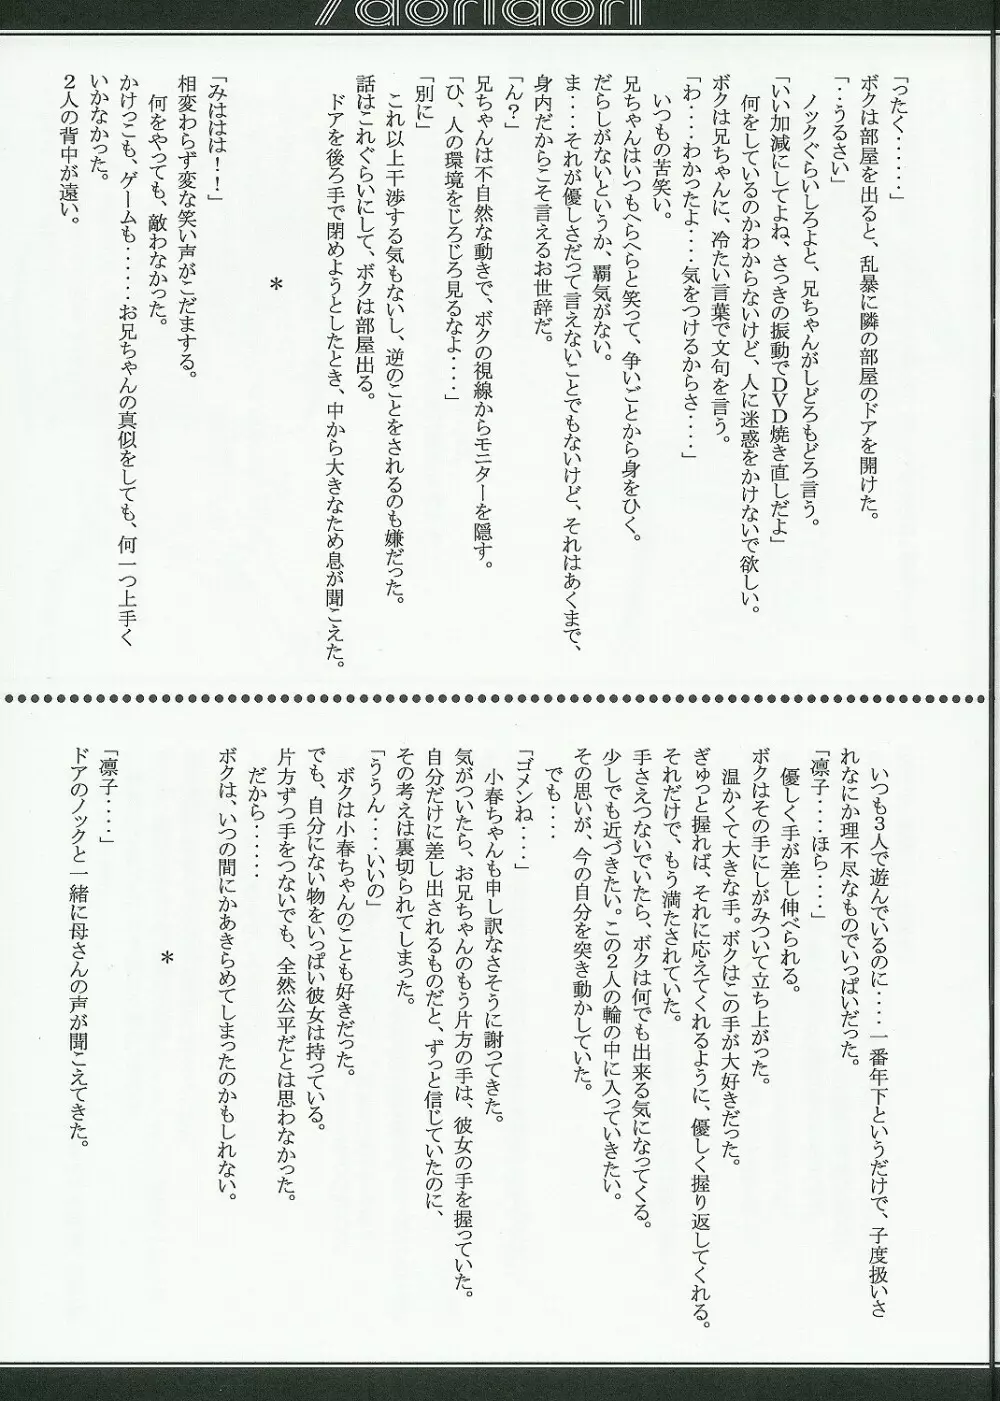 「ったく・・・・・・」
ボクは部屋を出ると、乱暴に隣の部屋のドアを開けた。
「・・うるさい」
ノックぐらいしろよと、兄ちゃんがしどろもどろ言う。
「いい加減にしてよね、さっきの振動でDVD焼き直しだよ」
何をしているのかわからないけど、人に迷惑をかけないで欲しい。
ボクは兄ちゃんに、冷たい言葉で文句を言う。
「わ・・・・わかったよ・・・気をつけるからさ・・・・」
いつもの苦笑い。
兄ちゃんはいつもへらへらと笑って、争いごとから身をひく。
だらしがないというか、覇気がない。
ま・・・・それが優しさだって言えないことでもないけど、それはあくまで、
身内だからこそ言えるお世辞だ。
「ん？」
兄ちゃんは不自然な動きで、ボクの視線からモニターを隠す。
「ひ、人の環境をじろじろ見るなよ・・・・」
「別に」
これ以上干渉する気もないし、逆のことをされるのも嫌だった。
話はこれぐらいにして、ボクは部屋出る。
ドアを後ろ手で閉めようとしたとき、中から大きなため息が聞こえた。
＊
「みははは！！」
相変わらず変な笑い声がこだまする。
何をやっても、敵わなかった。
かけっこも、ゲームも・・・・・・お兄ちゃんの真似をしても、何一つ上手く
いかなかった。
２人の背中が遠い。
いつも３人で遊んでいるのに・・・・一番年下というだけで、子度扱いさ
れなにか理不尽なものでいっぱいだった。
「凛子・・・・ほら・・・・」
優しく手が差し伸べられる。
ボクはその手にしがみついて立ち上がった。
温かくて大きな手。ボクはこの手が大好きだった。
ぎゅっと握れば、それに応えてくれるように、優しく握り返してくれる。
それだけで、もう満たされていた。
手さえつないでいたら、ボクは何でも出来る気になってくる。
少しでも近づきたい。この２人の輪の中に入っていきたい。
その思いが、今の自分を突き動かしていた。
でも・・・・
「ゴメンね・・・・」
小春ちゃんも申し訳なさそうに謝ってきた。
気がついたら、お兄ちゃんのもう片方の手は、彼女の手を握っていた。
自分だけに差し出されるものだと、ずっと信じていたのに、
その考えは裏切られてしまった。
「ううん・・・・いいの」
ボクは小春ちゃんのことも好きだった。
でも、自分にない物をいっぱい彼女は持っている。
片方ずつ手をつないでも、全然公平だとは思わなかった。
だから・・・・・
ボクは、いつの間にかあきらめてしまったのかもしれない。
＊
「凛子・・・・」
ドアのノックと一緒に母さんの声が聞こえてきた。